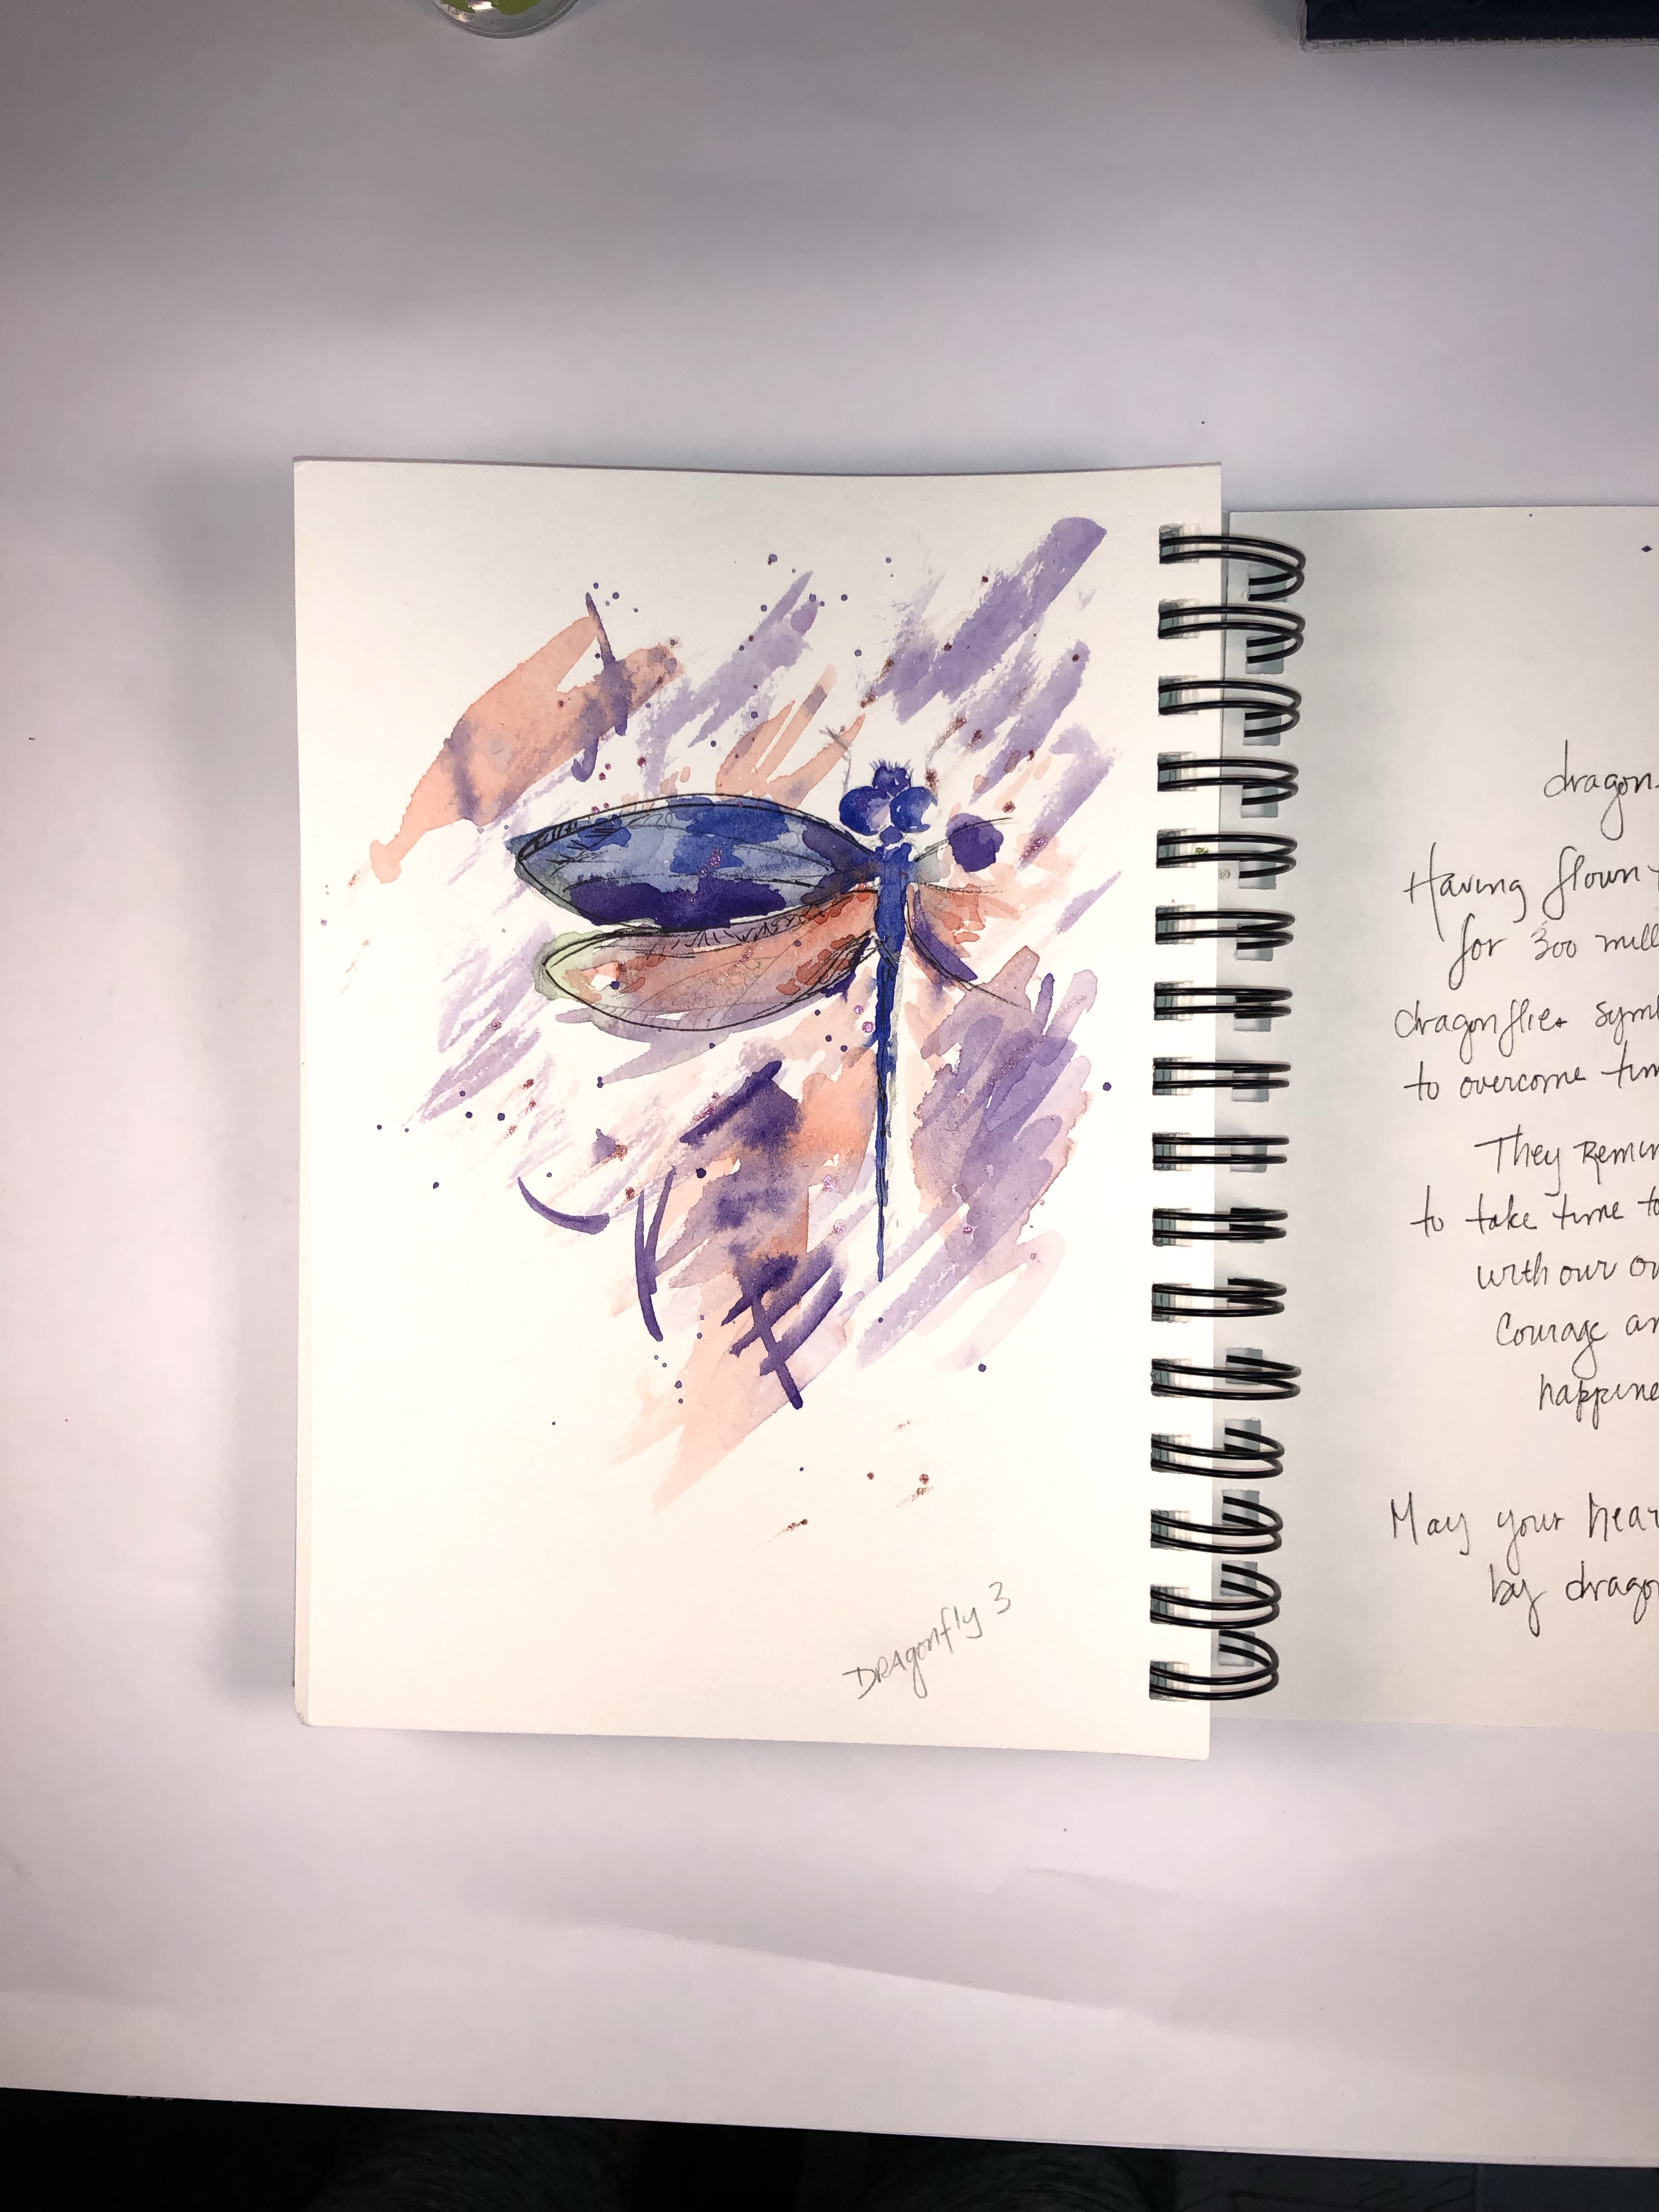 Dragonfly 3
dragon
Having flown
for 300 mill
dragonflies symb
to overcome tim
They Remin
to take time to
with our ow
Courage an
happine
May your hear
by drago